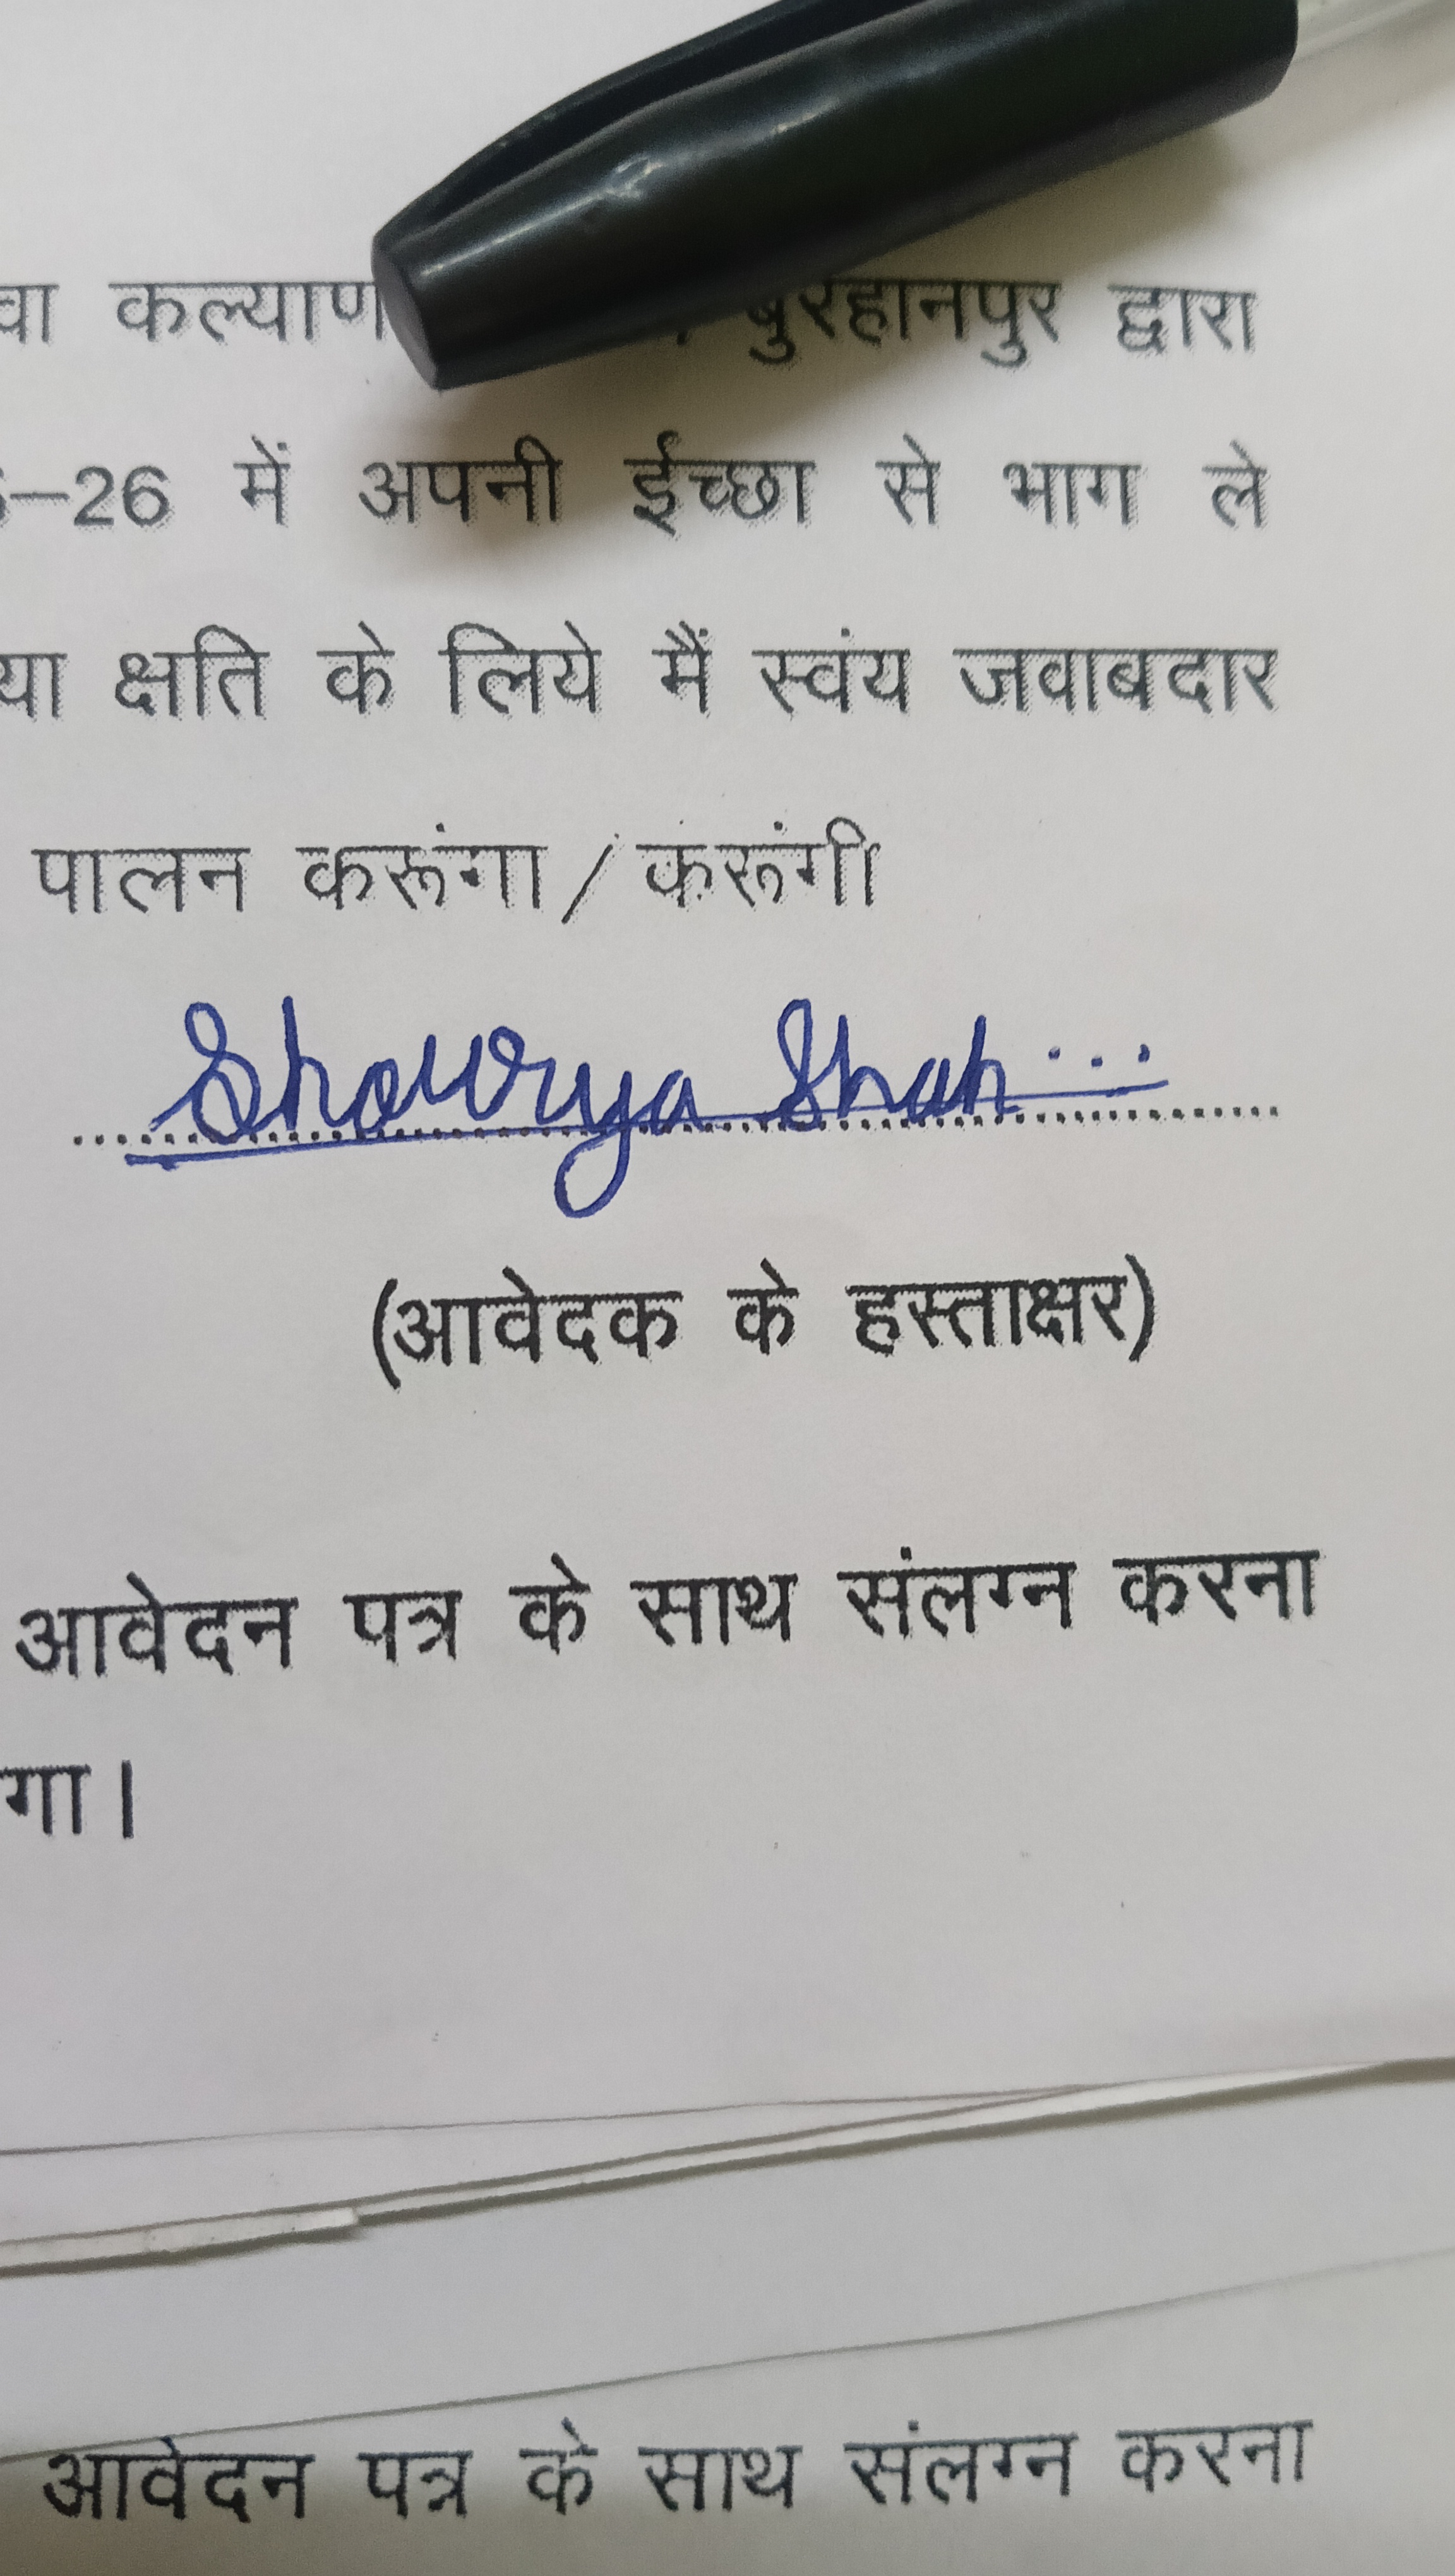 कल्याण बुरहानपुर द्वारा
–26 में अपनी ईच्छा से भाग ले
या क्षति के लिये मैं स्वंय जवाबदार
पालन करूंगा / करूंगी
Shourya Shah
(आवेदक के हस्ताक्षर)
आवेदन पत्र के साथ संलग्न करना
गा।
आवेदन पत्र के साथ संलग्न करना